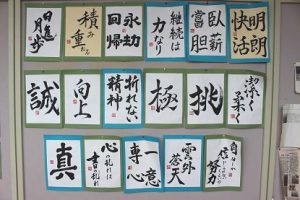 明朗
快活
臥薪
嘗胆
継続は
力なり
永劫
回帰
積み
重ね
日進
月歩
潔く
柔く
挑
極
折れない
精神
向上
誠
努力
雲外
蒼天
一意
専心
心の乱れは
書の乱れ
真